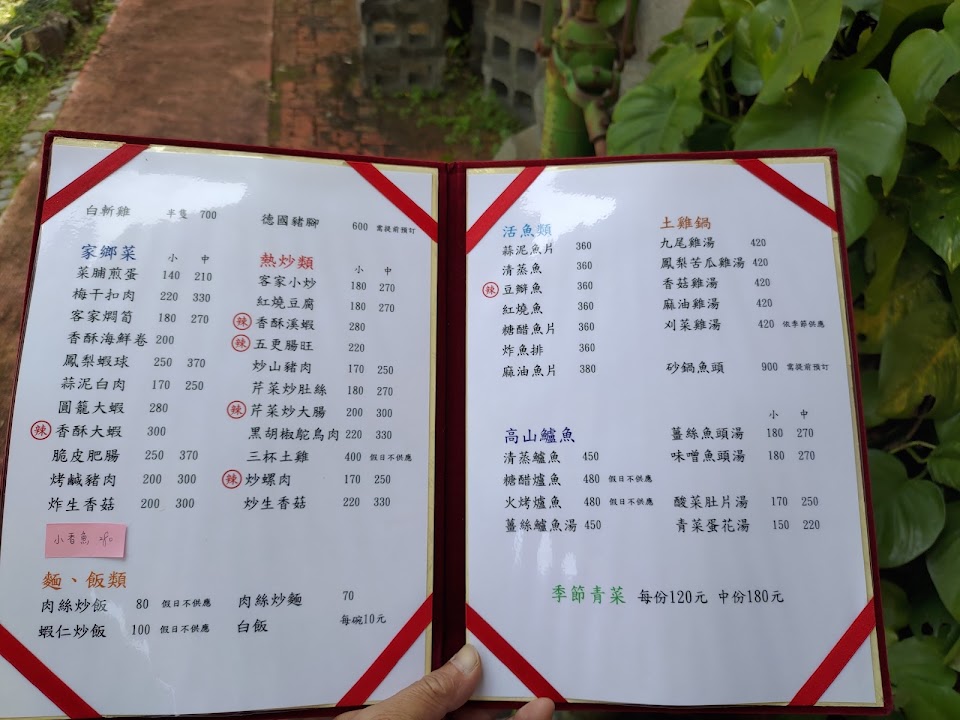 白斬雞 半隻 700
德國豬腳 600 需提前預訂
家鄉菜 小 中
菜脯煎蛋 140 210
梅干扣肉 220 330
客家燜筍 180 270
香酥海鮮卷 200
鳳梨蝦球 250 370
蒜泥白肉 170 250
圓籠大蝦 280
辣 香酥大蝦 300
脆皮肥腸 250 370
烤鹹豬肉 200 300
炸生香菇 200 300
小香魚
麵、飯類
肉絲炒飯 80 假日不供應
蝦仁炒飯 100 假日不供應
熱炒類 小 中
客家小炒 180 270
紅燒豆腐 180 270
辣 香酥溪蝦 280
辣 五更腸旺 220
炒山豬肉 170 250
芹菜炒肚絲 180 270
辣 芹菜炒大腸 200 300
黑胡椒鴕鳥肉 220 330
三杯土雞 400 假日不供應
辣 炒螺肉 170 250
炒生香菇 220 330
肉絲炒麵 70
白飯 每碗10元
活魚類
蒜泥魚片 360
清蒸魚 360
辣 豆瓣魚 360
紅燒魚 360
糖醋魚片 360
炸魚排 360
麻油魚片 380
高山鱸魚
清蒸鱸魚 450
糖醋鱸魚 480 假日不供應
火烤鱸魚 480 假日不供應
薑絲鱸魚湯 450
土雞鍋
九尾雞湯 420
鳳梨苦瓜雞湯 420
香菇雞湯 420
麻油雞湯 420
刈菜雞湯 420 依季節供應
砂鍋魚頭 900 需提前預訂
小 中
薑絲魚頭湯 180 270
味噌魚頭湯 180 270
酸菜肚片湯 170 250
青菜蛋花湯 150 220
季節青菜 每份120元 中份180元